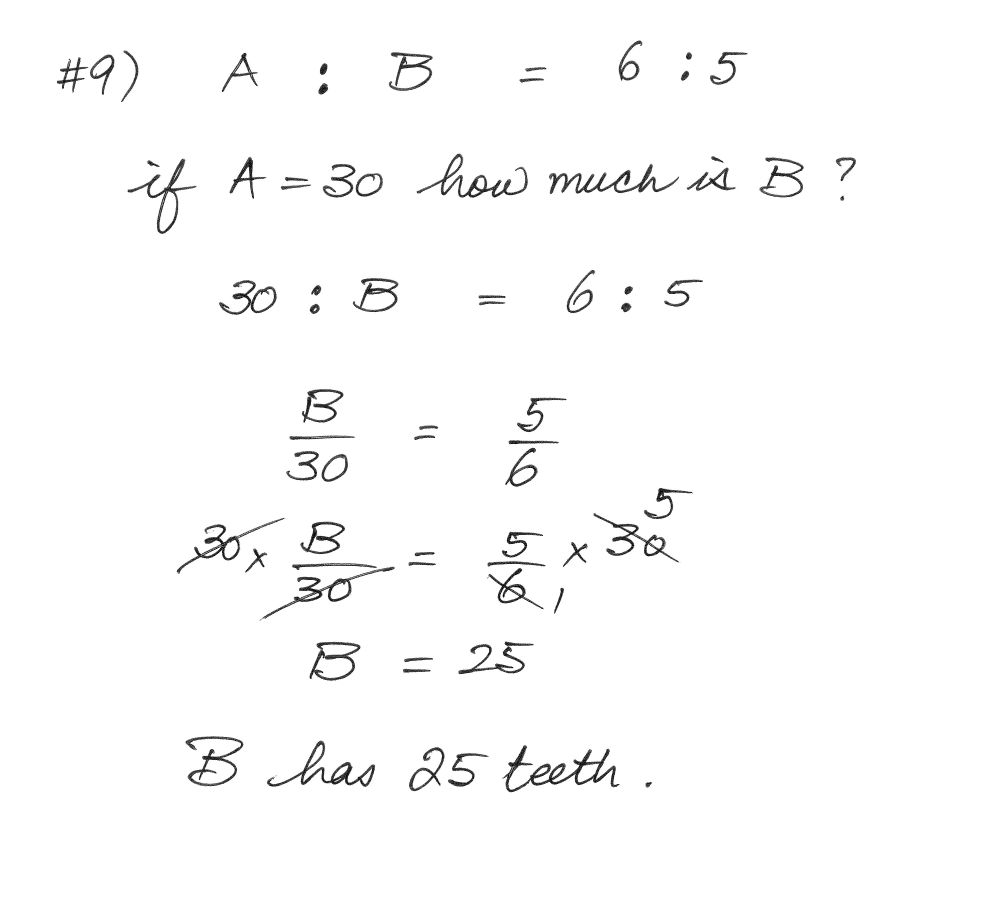 #9) A : B = 6 : 5
if A = 30 how much is B ?
30 : B = 6 : 5
B/30 = 5/6
30 x B/30 = 5/6 1 x 30 5
B = 25
B has 25 teeth.